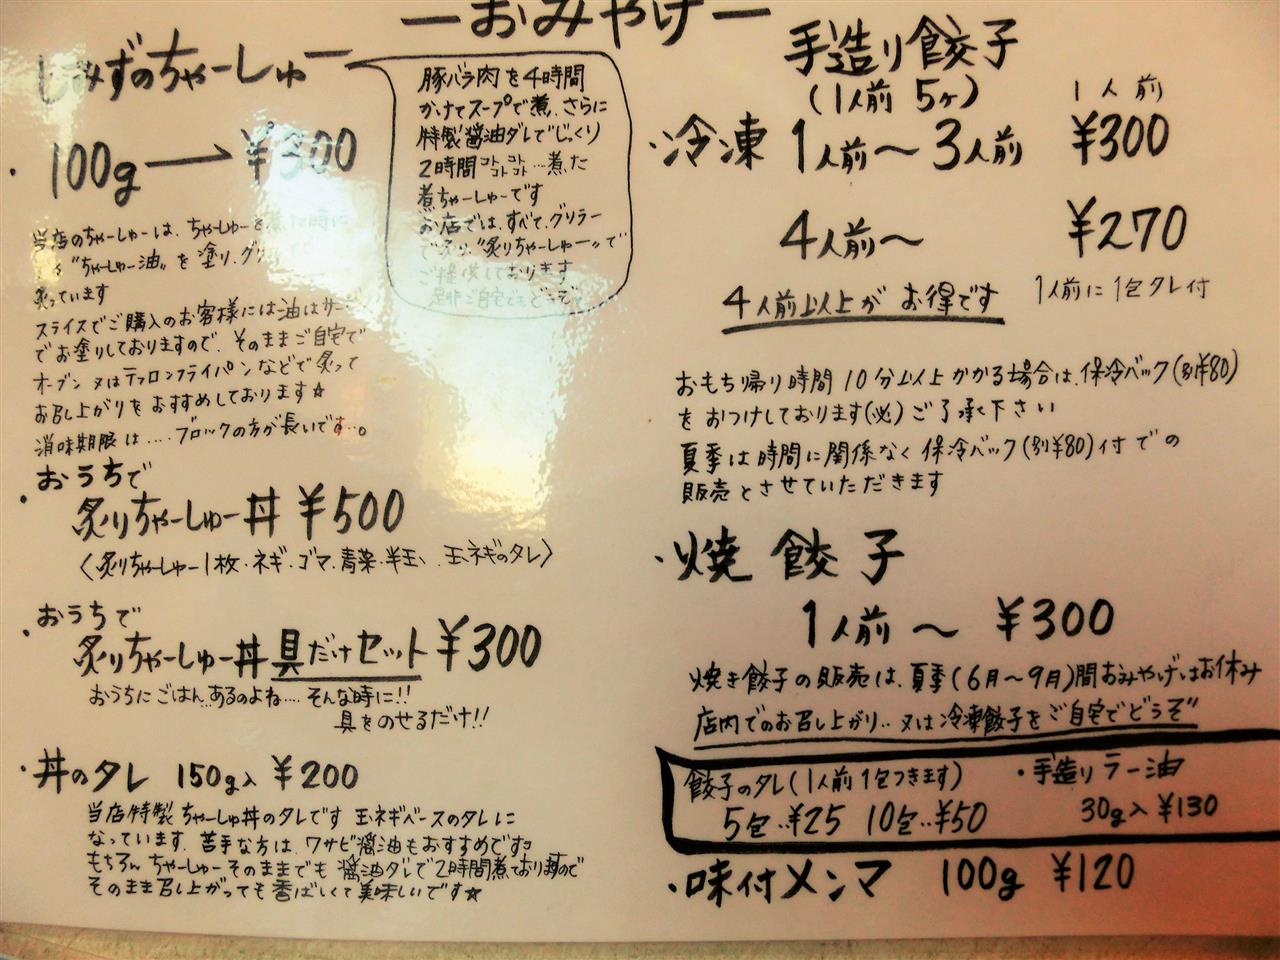 ーおみやげー
しみずのちゃーしゅー
・100g→¥300
豚バラ肉を4時間
かけてスープで煮、さらに
特製醤油ダレでじっくり
2時間コトコトコトコト…煮た
煮ちゃーしゅーです
お店では、すべて、グリラー
で炙り、"炙りちゃーしゅー"で
ご提供しております
是非ご自宅でもどうぞ
当店のちゃーしゅーは、ちゃーしゅーを煮た時に
"ちゃーしゅー油"を塗り、
炙っています
スライスでご購入のお客様には油はサービス
でお塗りしておりますので、そのままご自宅で
オーブン又はテフロンフライパンなどで炙って
お召し上がりをおすすめしております☆
消味期限は....ブロックの方が長いです…。
・おうちで
炙りちゃーしゅー丼 ¥500
〈炙りちゃーしゅー1枚・ネギ・ゴマ・青菜・半玉、玉ネギのタレ〉
・おうちで
炙りちゃーしゅー丼具だけセット ¥300
おうちにごはん…あるのよね....そんな時に!!
具をのせるだけ!!
・丼のタレ 150g入 ¥200
当店特製ちゃーしゅ丼のタレです 玉ネギベースのタレに
なっています、苦手な方は、ワサビ醤油もおすすめです
もちろんちゃーしゅーそのままでも醤油ダレで2時間煮ておりますので
そのまま召し上がっても香ばしくて美味しいです☆
手造り餃子
(1人前 5ヶ)
1人前
・冷凍 1人前～3人前 ¥300
4人前～ ¥270
4人前以上がお得です
1人前に1包タレ付
おもち帰り時間10分以上かかる場合は、保冷バック(別¥80)
をおつけしております(必)ご了承下さい
夏季は時間に関係なく保冷バック(別¥80)付での
販売とさせていただきます
・焼餃子
1人前～ ¥300
焼き餃子の販売は、夏季(6月～9月)間おみやげはお休み
店内でのお召し上がり‥又は冷凍餃子をご自宅でどうぞ"
餃子のタレ(1人前1包つきます)
5包‥¥25 10包‥¥50
・手造りラー油
30g入¥130
・味付メンマ 100g ¥120